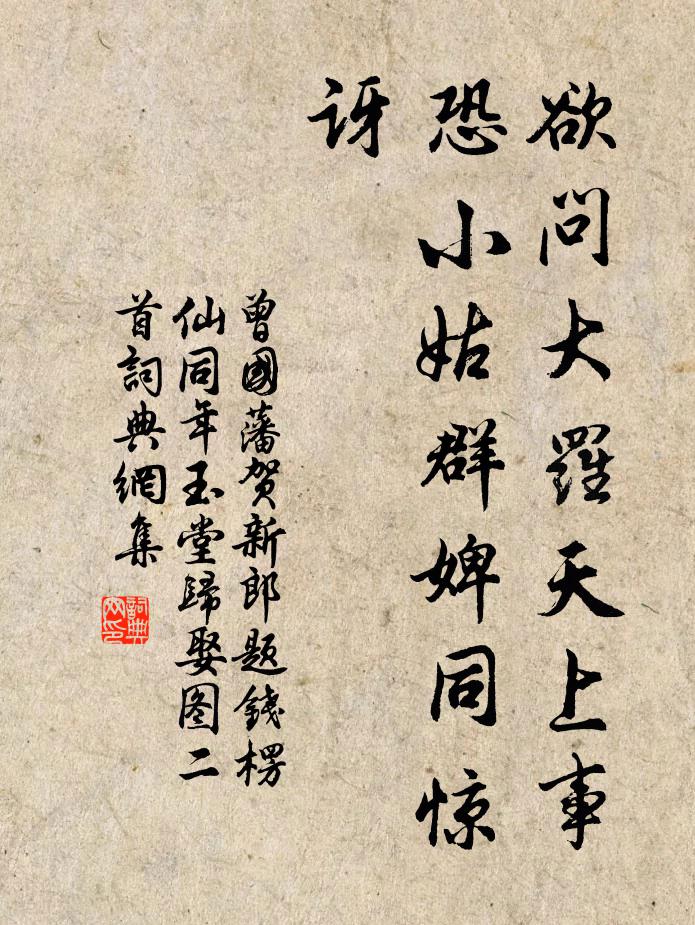 欲问大羅天上事
恐小姑群婢同惊
讶
曾國藩贺新郎题錢楞
仙同年玉堂歸娶图二
首詞典網集
詞典
网印